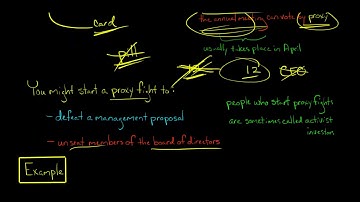 card
the annual meeting can vote by proxy
usually takes place in April
12
CEO
You might start a proxy fight to:
- defeat a management proposal
- unseat members of the board of directors
people who start proxy fights
are sometimes called activist
investors
Example